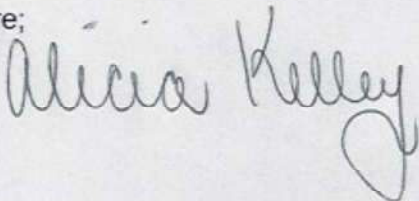 re;
Alicia Kelley